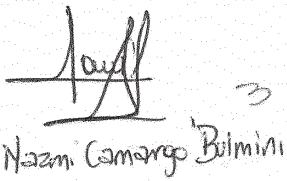 3
Nazmi Camargo Bulmini